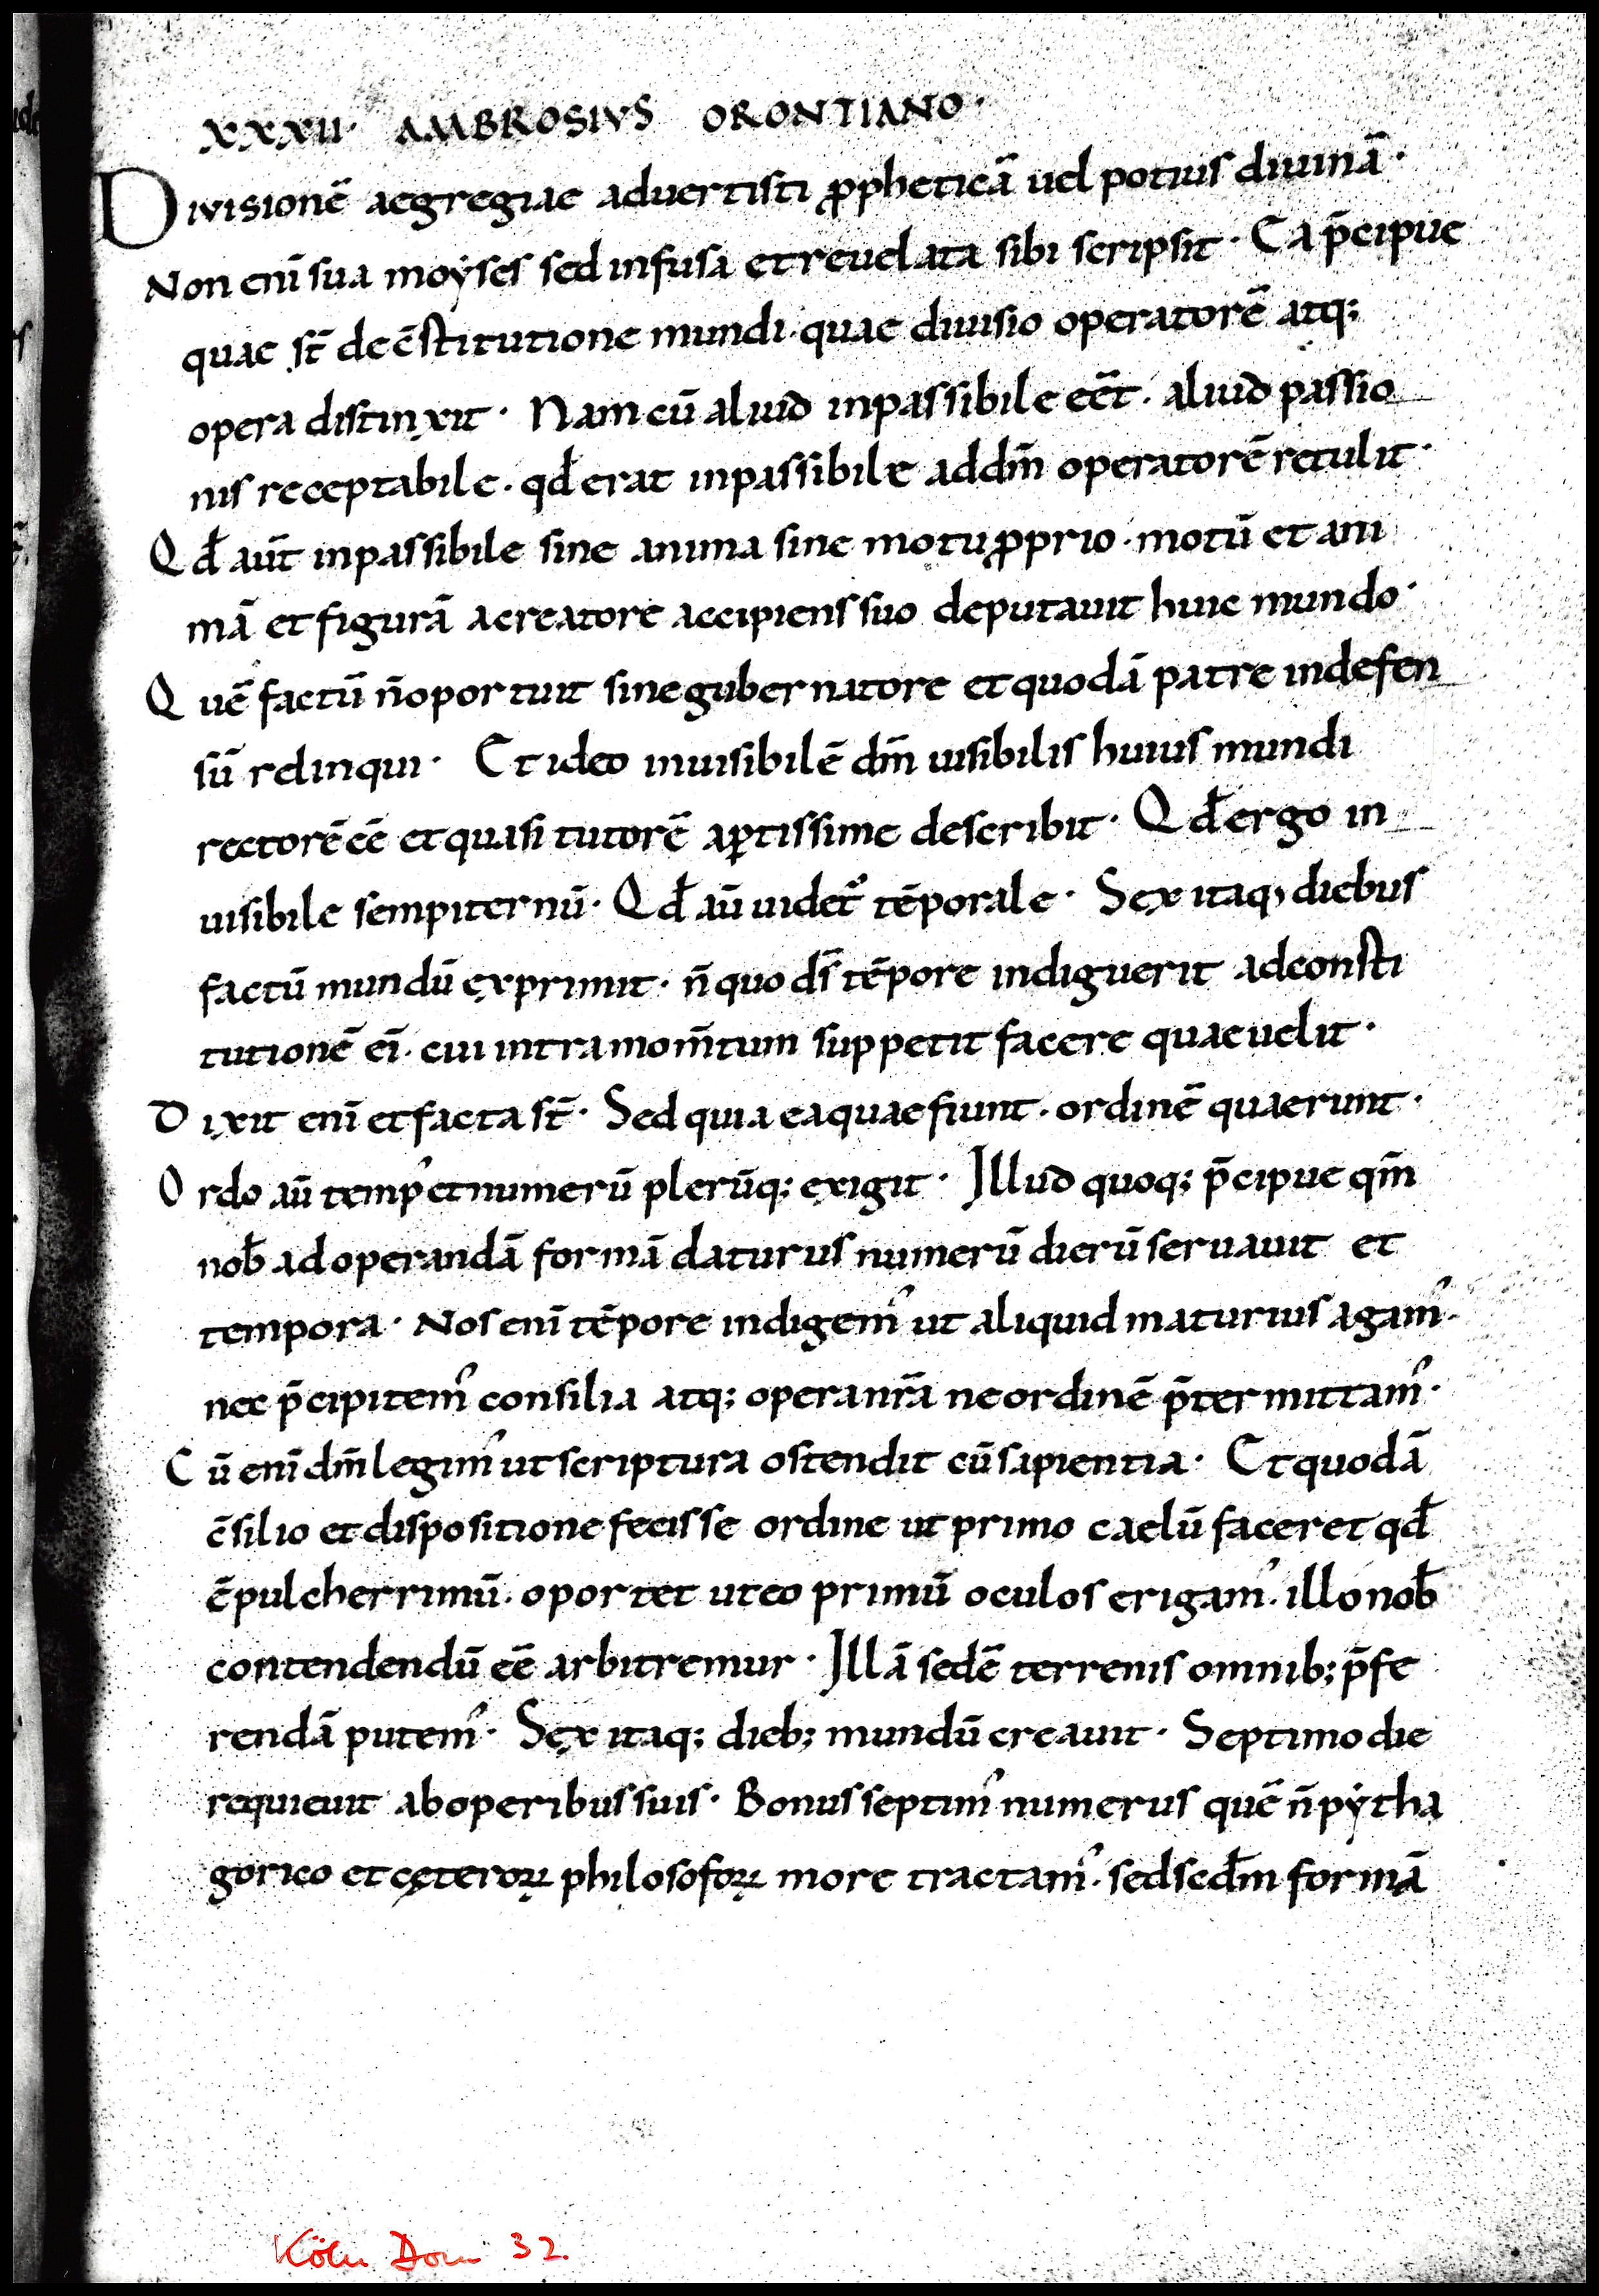 XXXII· AMBROSIVS ORONTIANO·
Divisionē aegregiae aduertisti ꝓpheticā uel potius diuinā·
Non eni̅ sua moẏses sed infusa et reuelata sibi scripsit· Ea p̄cipue
quae st̄ de c̄stitutione mundi· quae diuisio operatorē atq;
opera distinxit· Nam cū aliud inpassibile eēt· aliud passio
nis receptabile· qd̄ erat inpassibile ad dm̄ operatorē retulit·
Qd̄ aut̄ inpassibile sine anima sine motu ꝓprio· motū et ani
mā et figurā a creatore accipiens suo deputauit huic mundo·
Quē factū n̄ oportuit sine gubernatore et quodā patre indefen
sū relinqui· Et ideo inuisibilē dm̄ uisibilis huius mundi
rectorē eē et quasi tutorē aꝑtissime describit· Qd̄ ergo in
uisibile sempiternū· Qd̄ au̅ uidet᷑ tēporale· Sex itaq, diebus
factū mundū exprimit· n̄ quo ds̄ tēpore indiguerit ad consti
tutionē ei̅· cui intra mom̄tum suppetit facere quae uelit·
Dixit eni̅ et facta st̄· Sed quia ea quae fiunt· ordinē quaerunt·
Ordo au̅ temp᾽ et numerū plerūq; exigit· Illud quoq; p̄cipue qm̄
nob̄ ad operandā formā daturus numerū dierū seruauit et
tempora· Nos eni̅ tēpore indigem᾽ ut aliquid maturius agam᾽·
nec p̄cipitem᾽ consilia atq; opera nr̄a ne ordinē p̄termittam᾽·
Cū eni̅ dm̄ legim᾽ ut scriptura ostendit cū sapientia· Et quodā
c̄silio et dispositione fecisse ordine ut primo caelū faceret qd̄
ē pulcherrimū· oportet ut eo primū oculos erigam᾽· illo nob̄
contendendū eē arbitremur· Illā sedē terrenis omnib; p̄fe
rendā putem᾽· Sex itaq; dieb; mundū creauit· Septimo die
requieuit ab operibus suis· Bonus septim᾽ numerus quē n̄ pẏtha
gorico et cęteroꝝ philosofoꝝ more tractam᾽· sed scd̄m formā
Köln Dom 32.